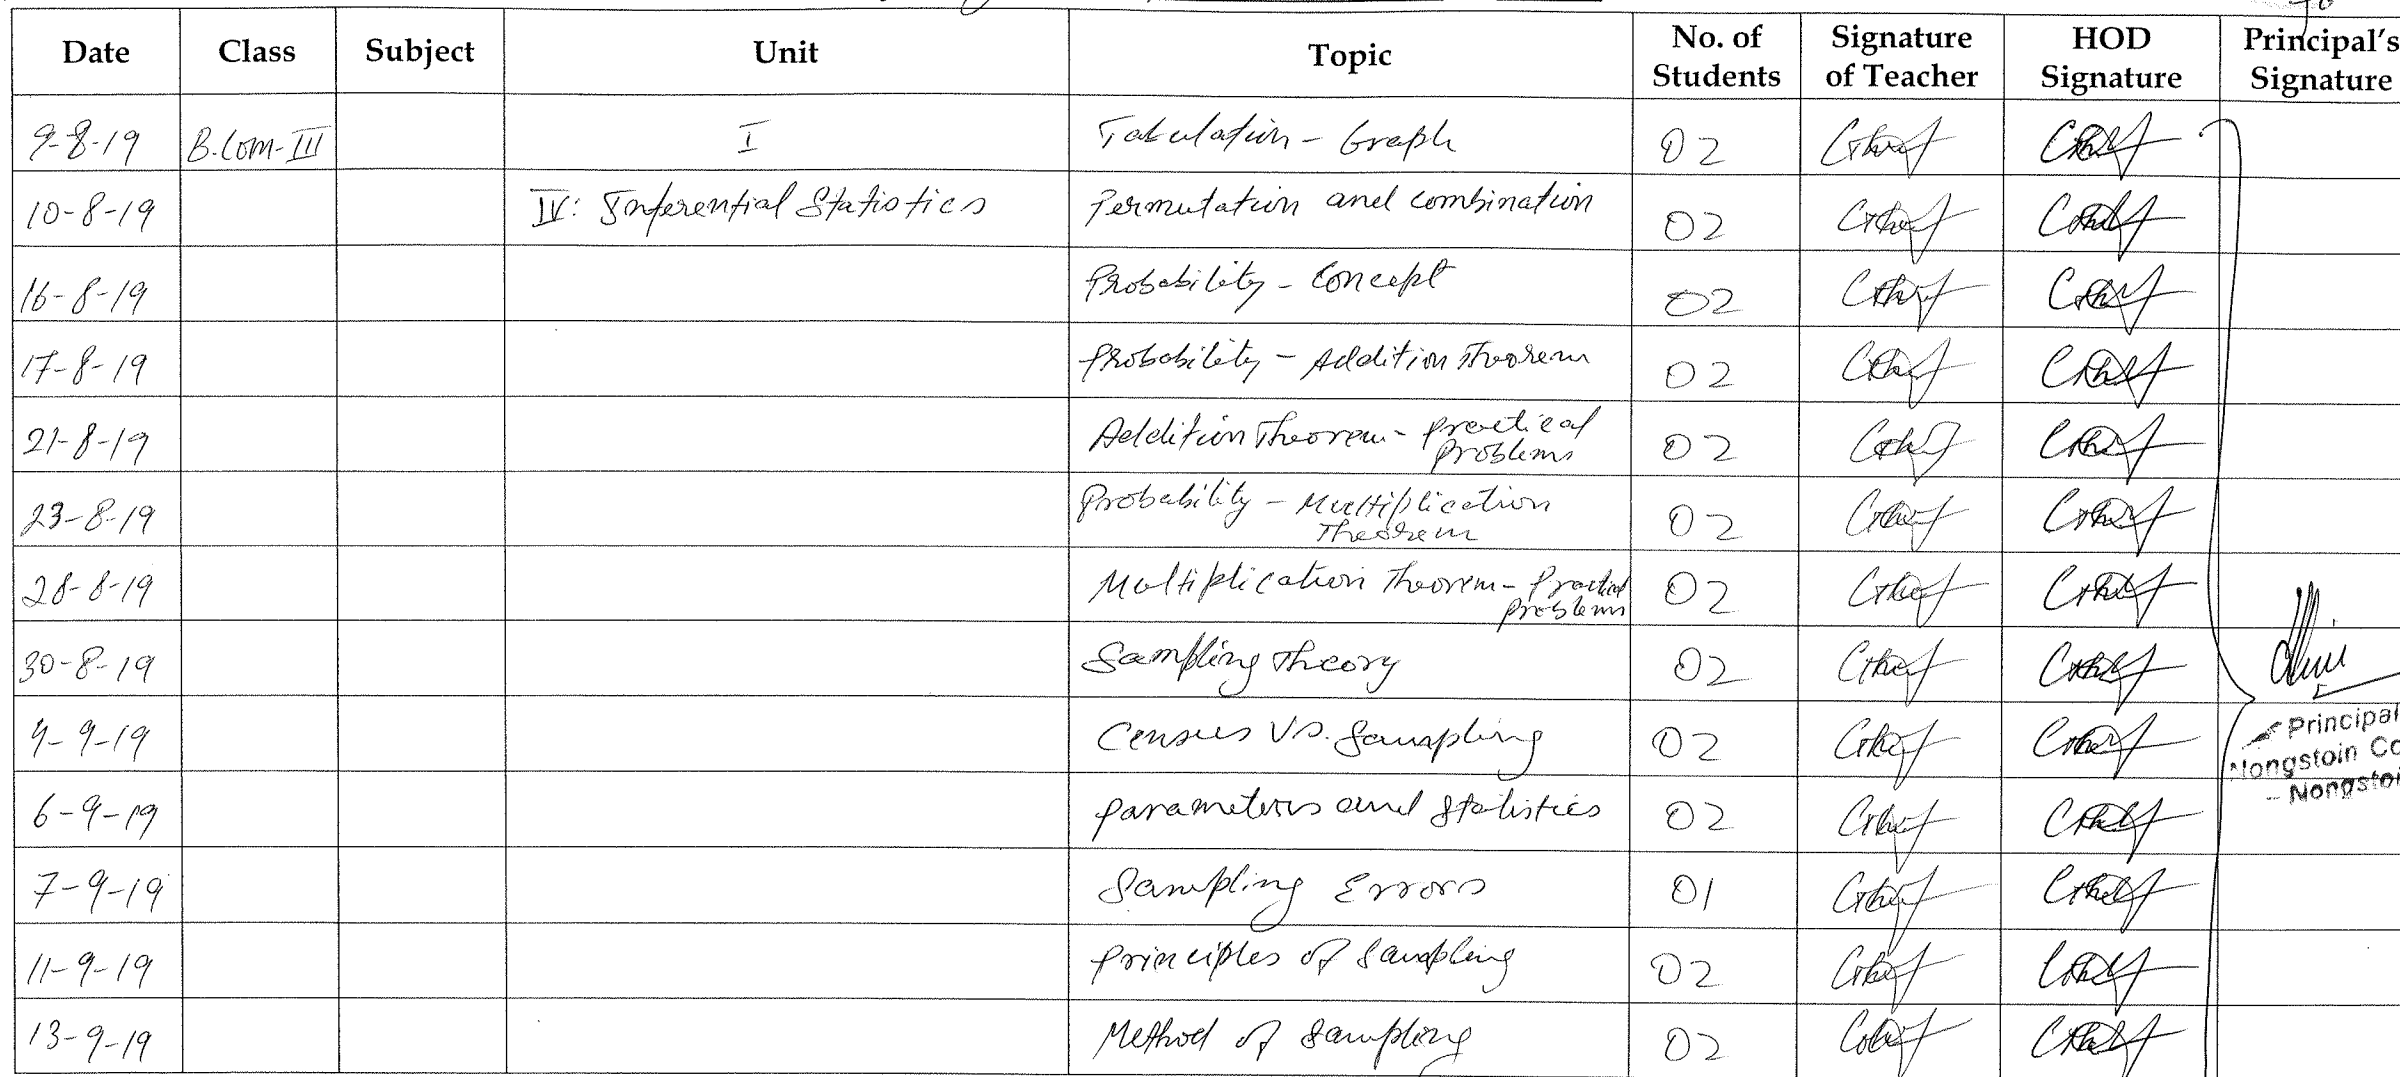 Date Class Subject Unit Topic No. of Students Signature of Teacher HOD Signature Principal's Signature
9-8-19 B.Com-III I Tabulation - Graph 02
10-8-19 IV: Inferential Statistics Permutation and combination 02
16-8-19 Probability - Concept 02
17-8-19 Probability - Addition Theorem 02
21-8-19 Addition Theorem - practical problems 02
23-8-19 Probability - Multiplication Theorem 02
28-8-19 Multiplication Theorem - Practical problems 02
30-8-19 Sampling Theory 02
4-9-19 Census Vs. Sampling 02
6-9-19 parameters and statistics 02
7-9-19 Sampling Errors 01
11-9-19 principles of sampling 02
13-9-19 Method of sampling 02
Principal
Nongstoin Co
Nongstoi